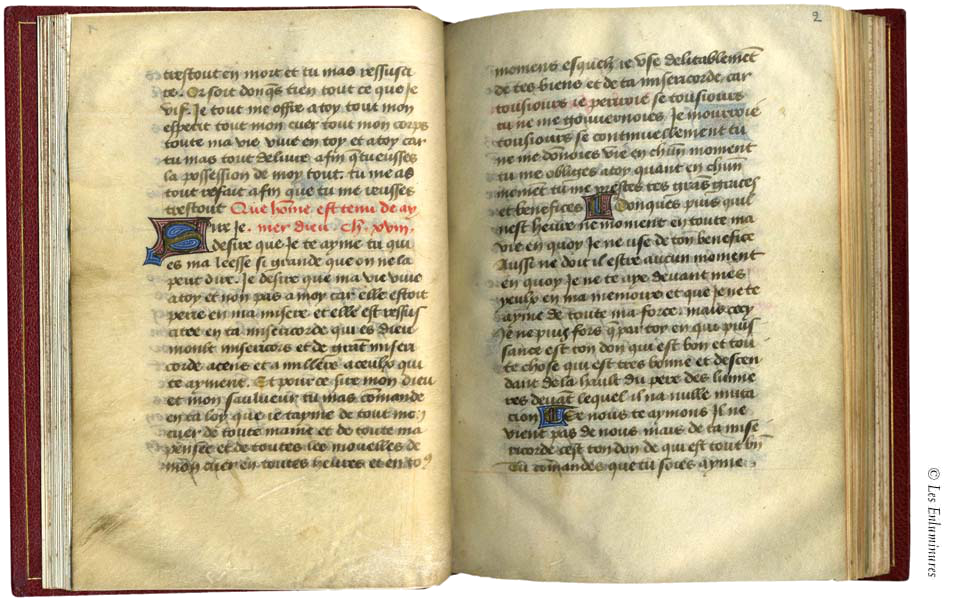 trestout en mort et tu mas ressusci
te. Or soit donqs tien tout ce que Je
vif. Je tout me offre a toy tout mon
esperit tout mon cuer tout mon corps
toute ma vie vive en toy et a toy car
tu mas tout delivre afin q̃ tu eusses
la possession de moy tout. tu me as
tout refait afin que tu me reusses
trestout Que hõme est tenu de ay
Sire Je. mer dieu. Ch. xviii.
desire que Je te ayme tu qui
es ma leesse si grande que on ne la
peut dire. Je desire que ma vie vive
a toy et non pas a moy car elle estoit
perie en ma misere et elle est ressus
citee en ta misericorde qui es dieu
moult misericors et de grãt miseri
corde a cens et a milliers a ceulx qui
te ayment. Et pour ce sire mon dieu
et mon saulueur tu mas cõmande
en ta loy que ie tayme de tout mon
cuer de toute mame et de toute ma
pensee et de toutes les mouelles de
mon cuer en toutes heures et en to9
2
momens esquelz ie vse delitablement
de tes biens et de ta misericorde. car
tousiours ie peruoie se tousiours
tu ne me gouuernoies. Je mourroie
tousiours se continuellement tu
ne me dõnoies vie en chũn moment
tu me obliges a toy quant en chũn
moment tu me prestes tes grãs graces
et benefices Donques puis quil
nest heure ne moment en toute ma
vie en quoy Je ne vse de tõn benefice
Aussi ne doit il estre aucun moment
en quoy Je ne te aye deuant mes
yeulx en ma memoire et que Je ne te
ayme de toute ma force. mais cecy
Je ne puis fors q̃ par toy en qui puis
sance est ton don qui est bon et tou
te chose qui est tres bonne et descen
dant de la hault du pere des lumie
res deuãt lequel il na nulle muta
cion Et ce nous te aymons Il ne
vient pas de nous mais de ta mise
ricorde cest ton don de qui est tout bñ
Tu cõmandes que tu soies ayme
© Les Enluminures